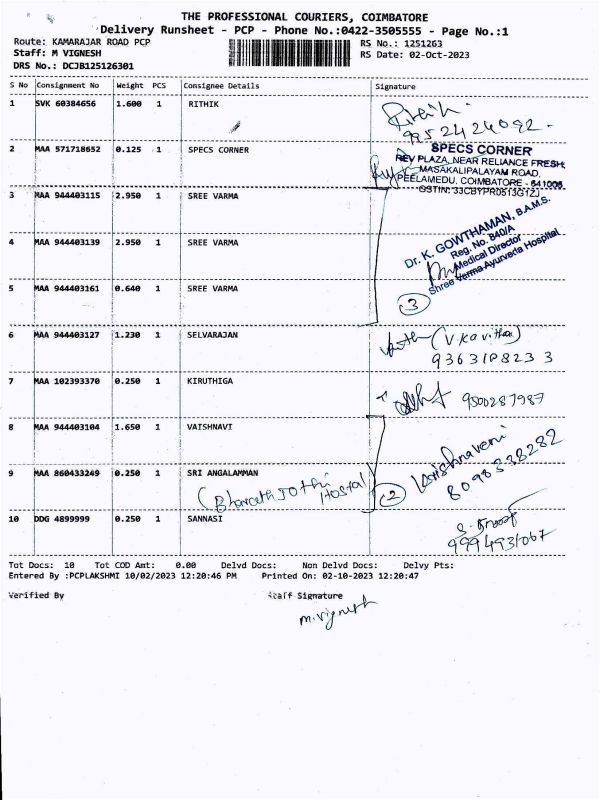 THE PROFESSIONAL COURIERS, COIMBATORE
Delivery Runsheet - PCP - Phone No.:0422-3505555 - Page No.:1
Route: KAMARAJAR ROAD PCP RS No.: 1251263
Staff: M VIGNESH RS Date: 02-Oct-2023
DRS No.: DCJB125126301
S No Consignment No Weight PCS Consignee Details Signature
1 SVK 60384656 1.600 1 RITHIK Rithik
9952424092.
2 MAA 571718652 0.125 1 SPECS CORNER SPECS CORNER
REV PLAZA, NEAR RELIANCE FRESH,
MASAKALIPALAYAM ROAD,
PEELAMEDU, COIMBATORE - 641006
GSTIN: 33CBYPR0513G1ZJ
3 MAA 944403115 2.950 1 SREE VARMA
4 MAA 944403139 2.950 1 SREE VARMA
Dr. K. GOWTHAMAN, B.A.M.S.
Reg. No. 840/A
Medical Director
Shree Varma Ayurveda Hospital
5 MAA 944403161 0.640 1 SREE VARMA 3
6 MAA 944403127 1.230 1 SELVARAJAN (V.Kavitha)
7 MAA 102393370 0.250 1 KIRUTHIGA 9500287987
8 MAA 944403104 1.650 1 VAISHNAVI
9 MAA 860433249 0.250 1 SRI ANGALAMMAN 2 8098338282
(Bharath Jothi Hostal)
10 DDG 4899999 0.250 1 SANNASI
Tot Docs: 10 Tot COD Amt: 0.00 Delvd Docs: Non Delvd Docs: Delvy Pts:
Entered By :PCPLAKSHMI 10/02/2023 12:20:46 PM Printed On: 02-10-2023 12:20:47
Verified By Staff Signature
m.vignesh